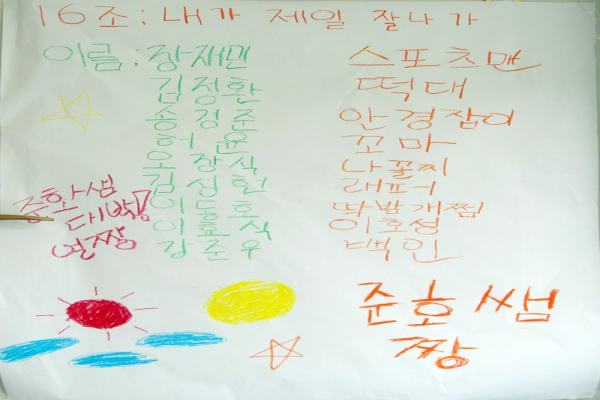 16조:내가 제일 잘나가
이름:장재민 스포츠맨
김정환 떡대
송경준 안경잡이
허윤 꼬마
오장식 나꼴찌
김성헌 래퍼
딱밤개찜
이효식 이호성
김준우 백인
준화쌤
대박!
연짱
준호쌤
짱